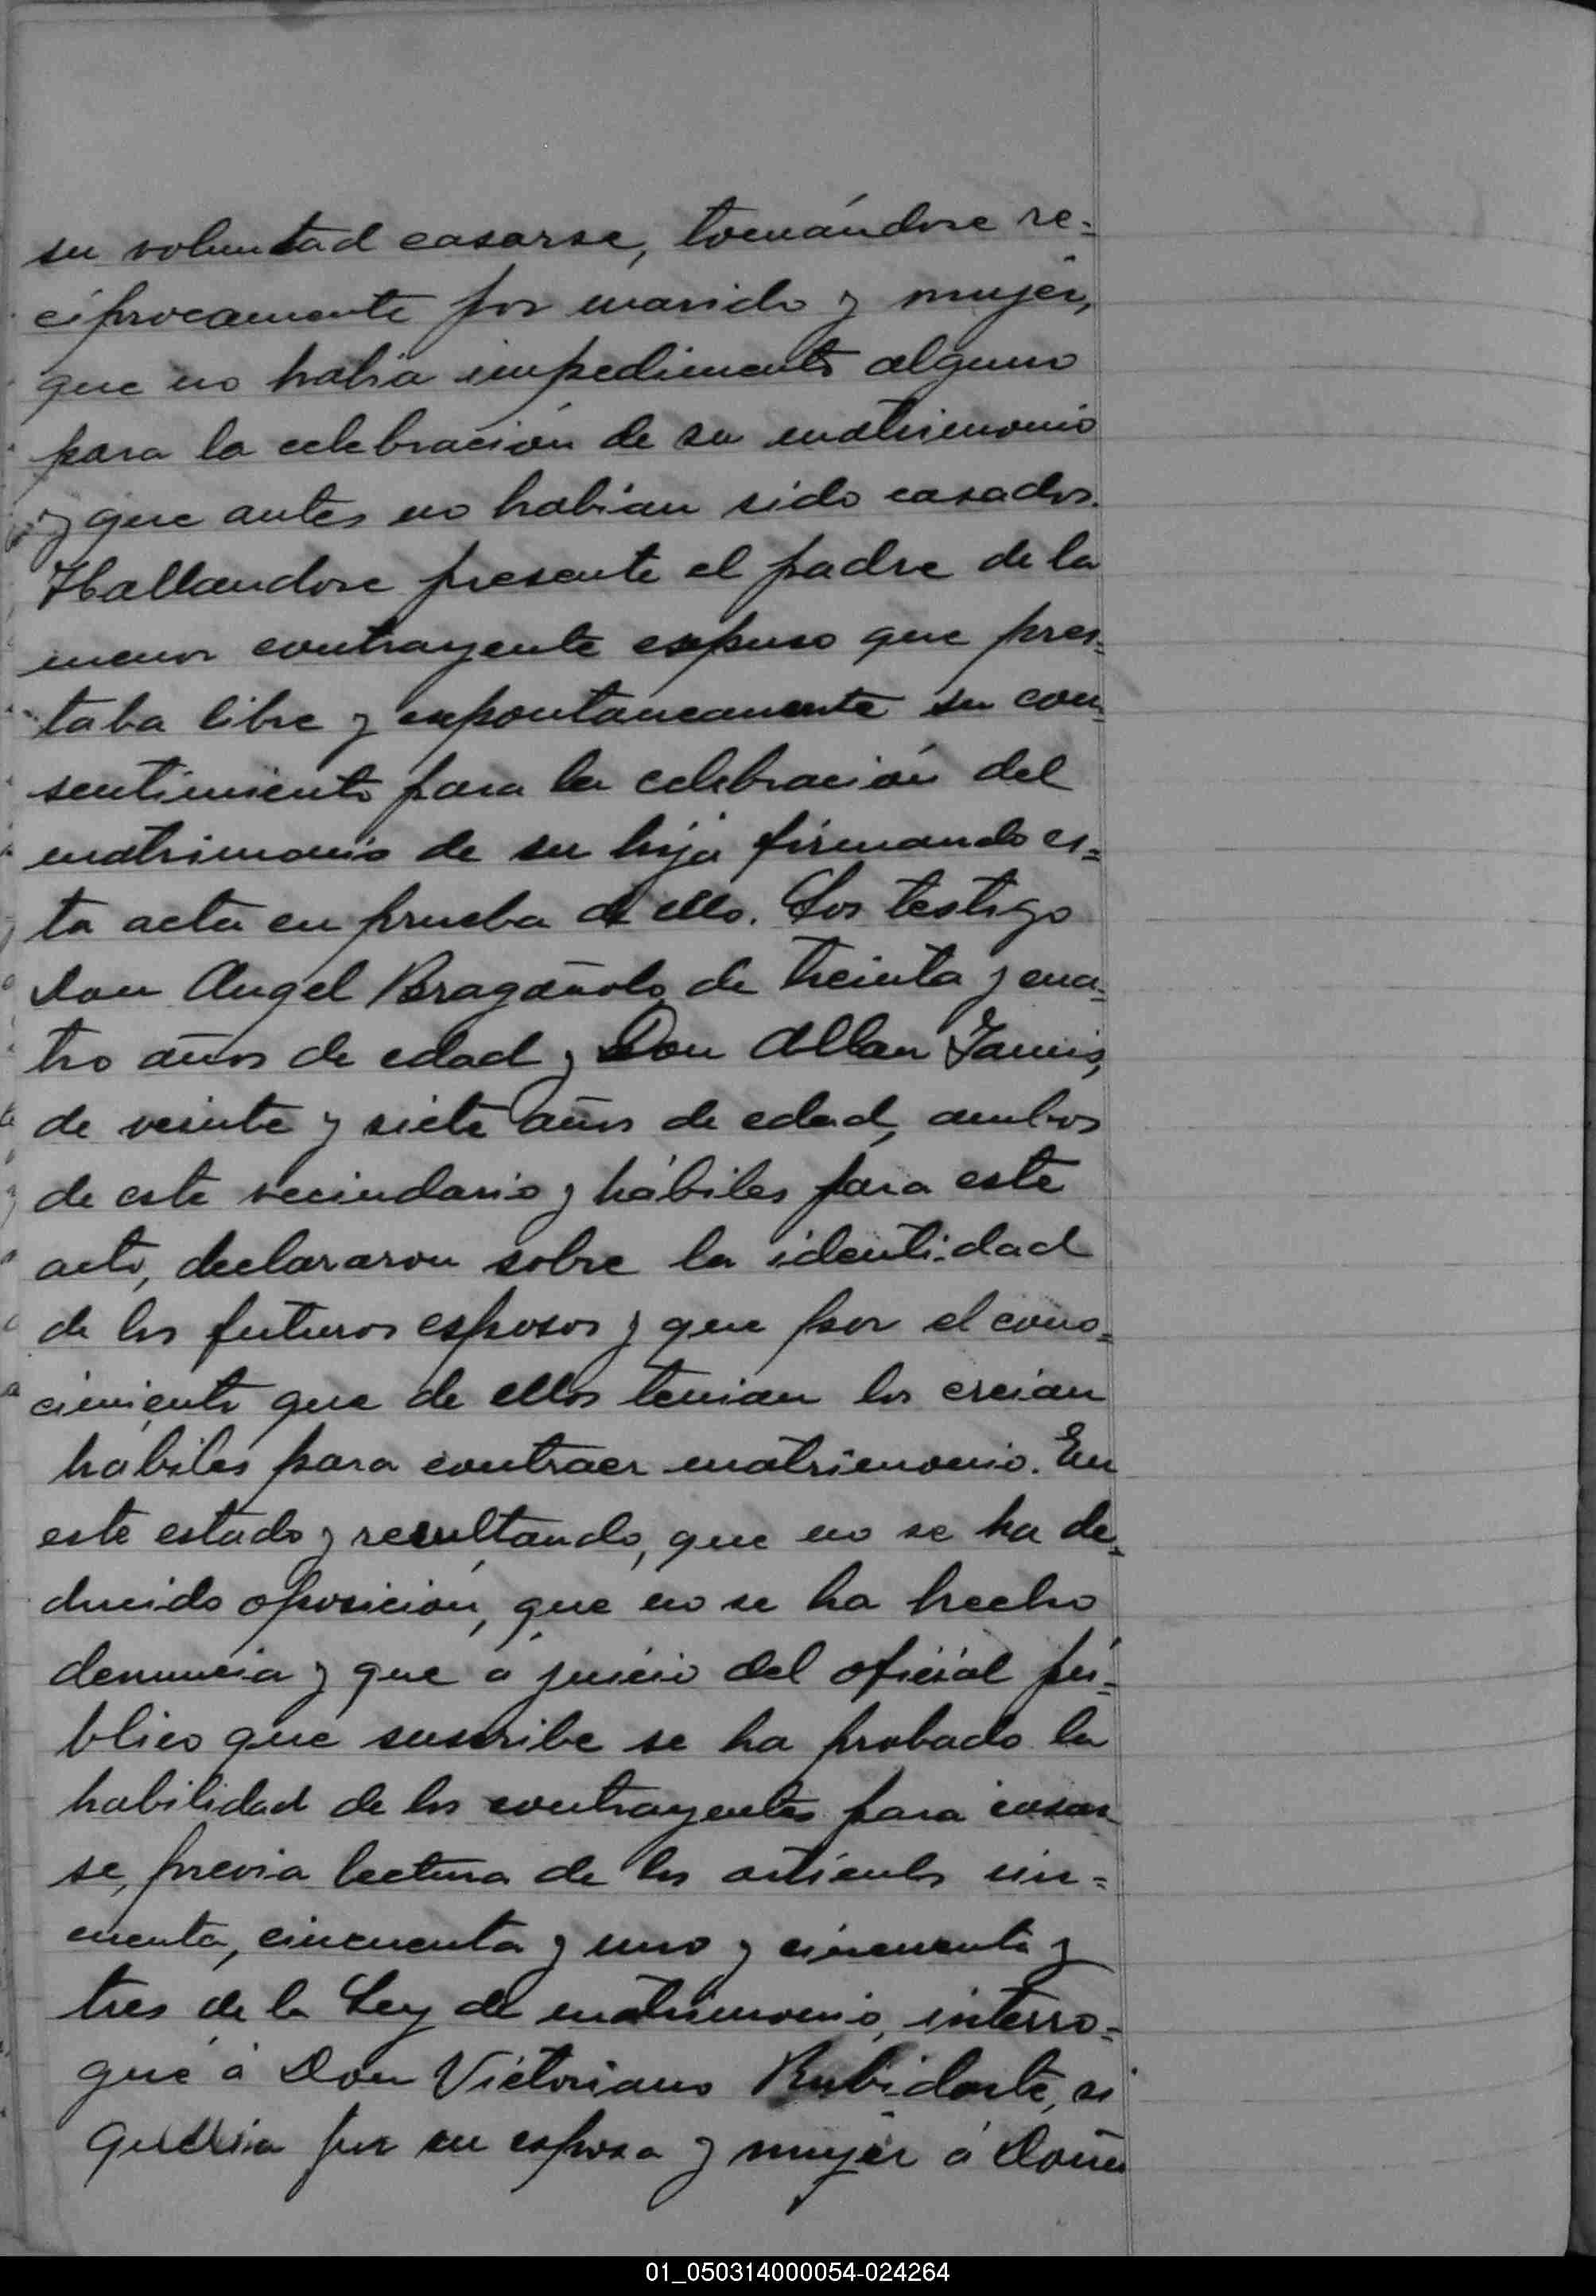 su voluntad casarse, tomándose re=
ciprocamente por marido y mujer,
que no habia impedimento alguno
para la celebración de su matrimonio
y que antes no habian sido casados.
Hallandose presente el padre de la
menor contrayente expuso que pres=
taba libre y expontaneamente su con=
sentimiento para la celebración del
matrimonio de su hija firmando es=
ta acta en prueba de ello. Los testigo
Don Angel de treinta y cua=
tro años de edad y Don Allan
de veinte y siete años de edad, ambos
de este vecindario y hábiles para este
acto, declararon sobre la identidad
de los futuros esposos y que por el cono=
cimiento que de ellos tenian los creian
habiles para contraer matrimonio. En
este estado y resultando, que no se ha de=
ducido oposición, que no se ha hecho
denuncia y que á juicio del oficial pú=
blico que suscribe se ha probado la
habilidad de los contrayentes para casar
se, previa lectura de los articulos cin=
cuenta, cincuenta y uno y cincuenta y
tres de la Ley de matrimonio, interro=
gué á Don Victoriano Rubidarte, si
querria por su esposa y mujer á Doña
01_050314000054-024264